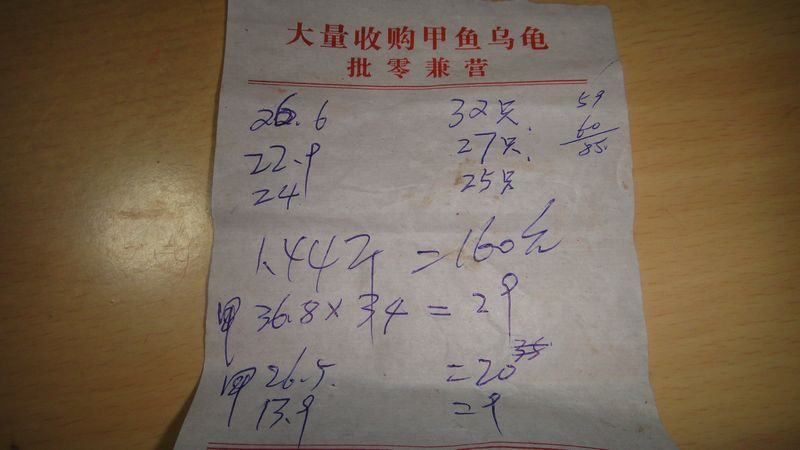 大量收购甲鱼乌龟
批零兼营
26.6 32只. 59
22.9 27只. 60
24 25只 85.
1.44斤 =160元
甲 36.8×34 = 29
甲 26.5. =20
13.9 =9